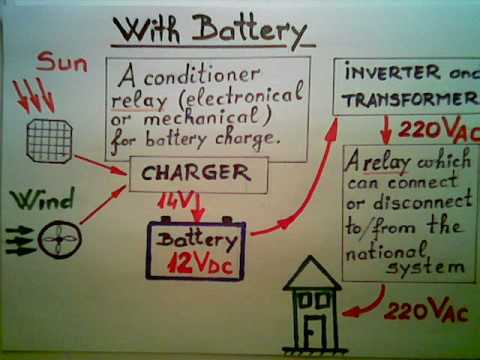 With Battery
Sun
A conditioner
relay (electronical
or mechanical)
for battery charge.
CHARGER
Wind
14V
Battery
12VDC
INVERTER and
TRANSFORMER
220VAC
A relay which
can connect
or disconnect
to/from the
national
system
220VAC